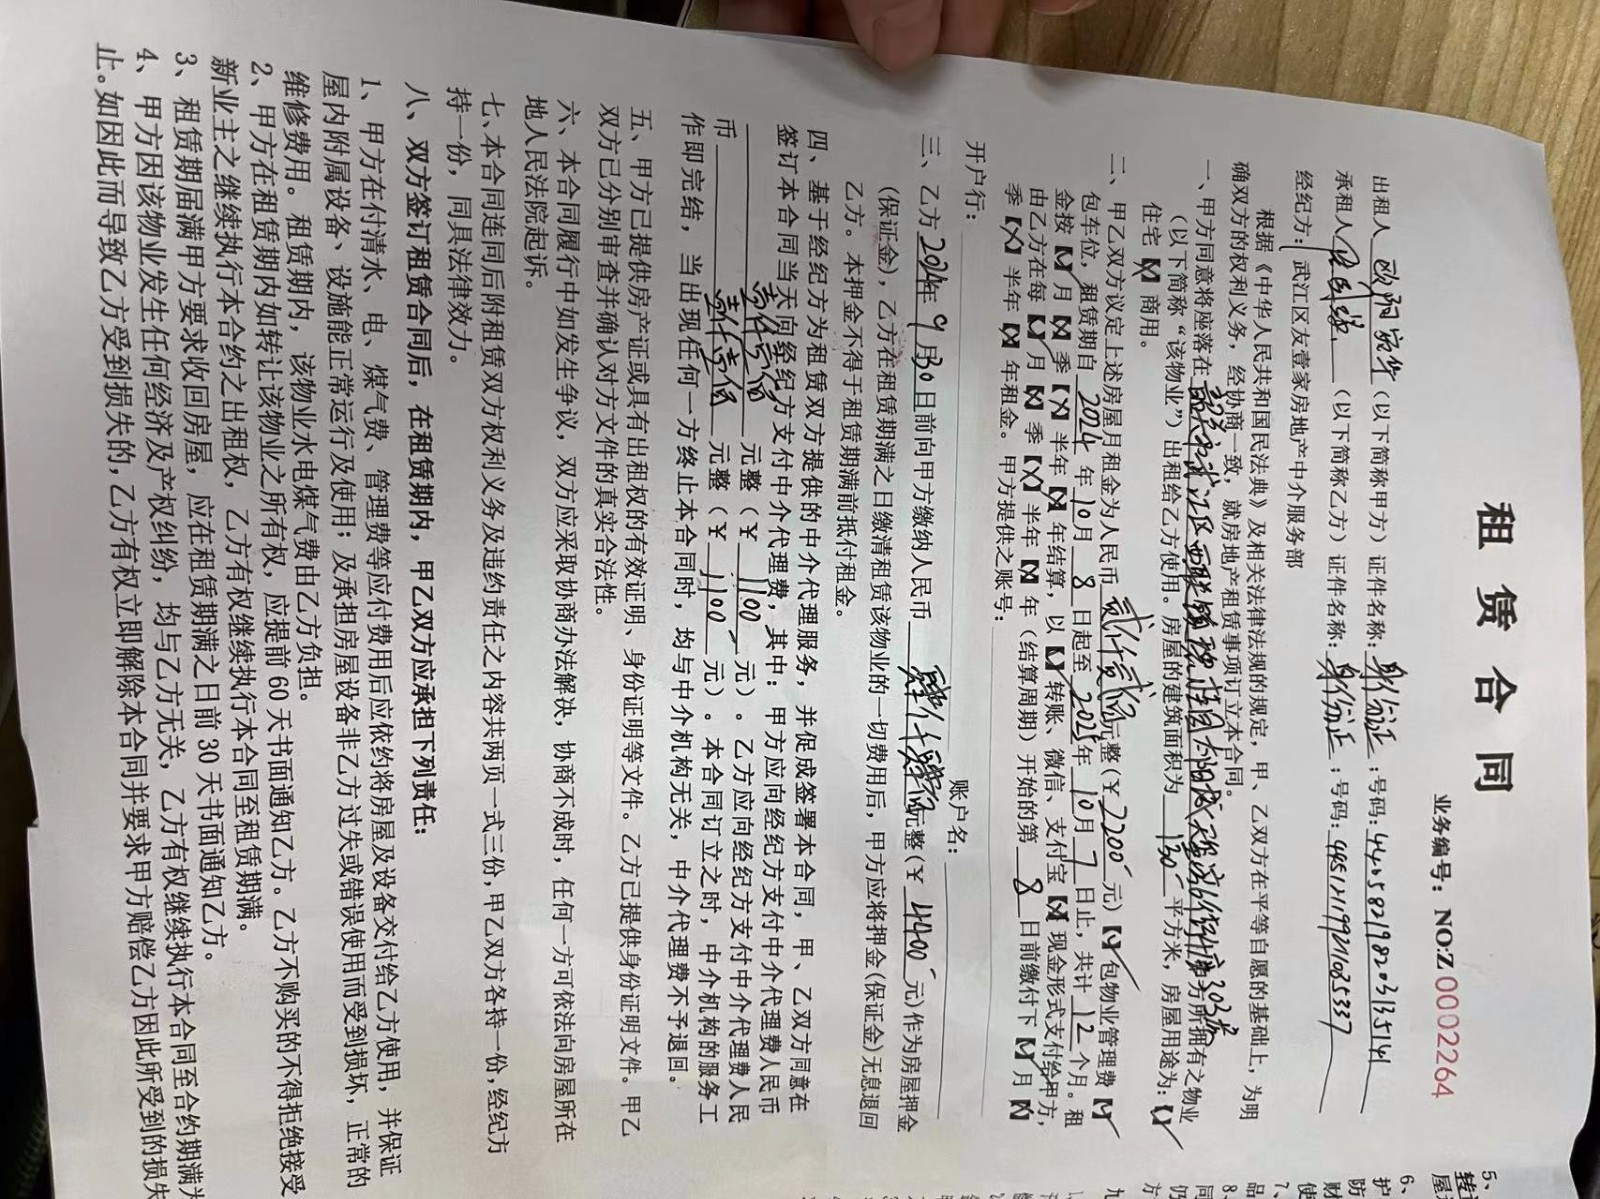 租 赁 合 同
业务编号：NO:Z 0002264
出租人 欧阳 （以下简称甲方）证件名称：身份证；号码：440582198203135141
承租人 （以下简称乙方）证件名称：身份证；号码：
经纪方：武江区友壹家房地产中介服务部
根据《中华人民共和国民法典》及相关法律法规的规定，甲、乙双方在平等自愿的基础上，为明
确双方的权利义务，经协商一致，就房地产租赁事项订立本合同。
一、甲方同意将座落在 韶关市武江区西联镇 303房 房所拥有之物业
（以下简称“该物业”）出租给乙方使用。房屋的建筑面积为 130 平方米，房屋用途为：【√】
住宅【X】商用。
二、甲乙双方议定上述房屋月租金为人民币 贰仟贰佰 元整（￥2200元）【X】包物业管理费【X】
包车位，租赁期自 2024 年 10 月 8 日起至 2025 年 10 月 7 日止，共计 12 个月。租
金按【√】月【X】季【X】半年【X】年结算，以【√】转账、微信、支付宝【X】现金形式支付给甲方，
由乙方在每【√】月【X】季【X】半年【X】年（结算周期）开始的第 8 日前缴付下【√】月【X】
季【X】半年【X】年租金。甲方提供之账号：
开户行： 账户名：
三、乙方 2024年 9 月30日前向甲方缴纳人民币 肆仟肆佰元整（￥ 4400 元）作为房屋押金
（保证金），乙方在租赁期满之日缴清租赁该物业的一切费用后，甲方应将押金（保证金）无息退回
乙方。本押金不得于租赁期满前抵付租金。
四、基于经纪方为租赁双方提供的中介代理服务，并促成签署本合同，甲、乙双方同意在
签订本合同当天向经纪方支付中介代理费，其中：甲方应向经纪方支付中介代理费人民币
壹仟壹佰 元整（￥ 1100 元）。乙方应向经纪方支付中介代理费人民
币 壹仟壹佰 元整（￥ 1100 元）。本合同订立之时，中介机构的服务工
作即完结，当出现任何一方终止本合同时，均与中介机构无关，中介代理费不予退回。
五、甲方已提供房产证或具有出租权的有效证明、身份证明等文件。乙方已提供身份证明文件。甲乙
双方已分别审查并确认对方文件的真实合法性。
六、本合同履行中如发生争议，双方应采取协商办法解决，协商不成时，任何一方可依法向房屋所在
地人民法院起诉。
七、本合同连同后附租赁双方权利义务及违约责任之内容共两页一式三份，甲乙双方各持一份，经纪方
持一份，同具法律效力。
八、双方签订租赁合同后，在租赁期内，甲乙双方应承担下列责任：
1、甲方在付清水、电、煤气费、管理费等应付费用后应依约将房屋及设备交付给乙方使用，并保证
屋内附属设备、设施能正常运行及使用；及承担房屋设备非乙方过失或错误使用而受到损坏，正常的
维修费用。租赁期内，该物业水电煤气费由乙方负担。
2、甲方在租赁期内如转让该物业之所有权，应提前 60 天书面通知乙方。乙方不购买的不得拒绝接受
新业主之继续执行本合约之出租权，乙方有权继续执行本合同至租赁期满。
3、租赁期届满甲方要求收回房屋，应在租赁期满之日前 30 天书面通知乙方。
4、甲方因该物业发生任何经济及产权纠纷，均与乙方无关，乙方有权继续执行本合同至合约期满为
止。如因此而导致乙方受到损失的，乙方有权立即解除本合同并要求甲方赔偿乙方因此所受到的损失